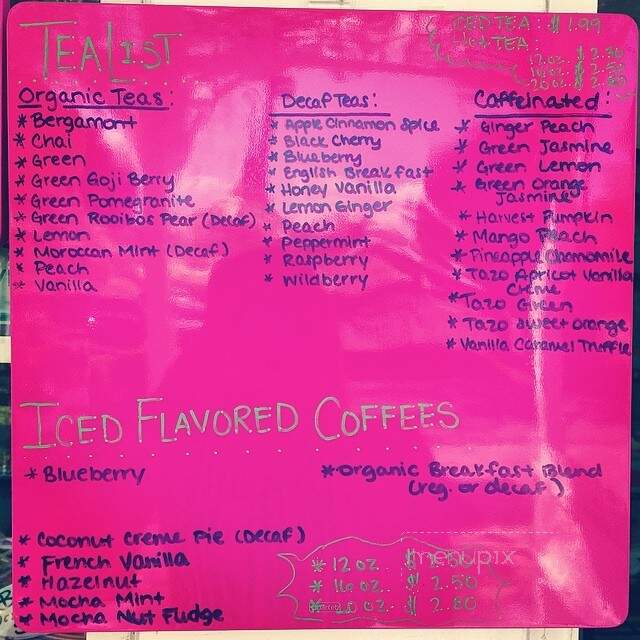 TEA LIST
ICED TEA: $1.99
HOT TEA:
12 oz. $2.30
16 oz. $2.50
20 oz. $2.80
Organic Teas:
* Bergamont
* Chai
* Green
* Green Goji Berry
* Green Pomegranite
* Green Rooibos Pear (Decaf)
* Lemon
* Moroccan Mint (Decaf)
* Peach
* Vanilla
Decaf Teas:
* Apple Cinnamon Spice
* Black Cherry
* Blueberry
* English Breakfast
* Honey Vanilla
* Lemon Ginger
* Peach
* Peppermint
* Raspberry
* Wildberry
Caffeinated:
* Ginger Peach
* Green Jasmine
* Green Lemon
* Green Orange
Jasmine
* Harvest Pumpkin
* Mango Peach
* Pineapple Chamomile
* Tazo Apricot Vanilla
Creme
* Tazo Green
* Tazo Sweet Orange
* Vanilla Caramel Truffle
ICED FLAVORED COFFEES
* Blueberry
* Organic Breakfast Blend
(reg. or decaf)
* Coconut Creme Pie (Decaf)
* French Vanilla
* Hazelnut
* Mocha Mint
* Mocha Nut Fudge
* 12 oz. $
* 16 oz. $ 2.50
oz. $ 2.80
menupix